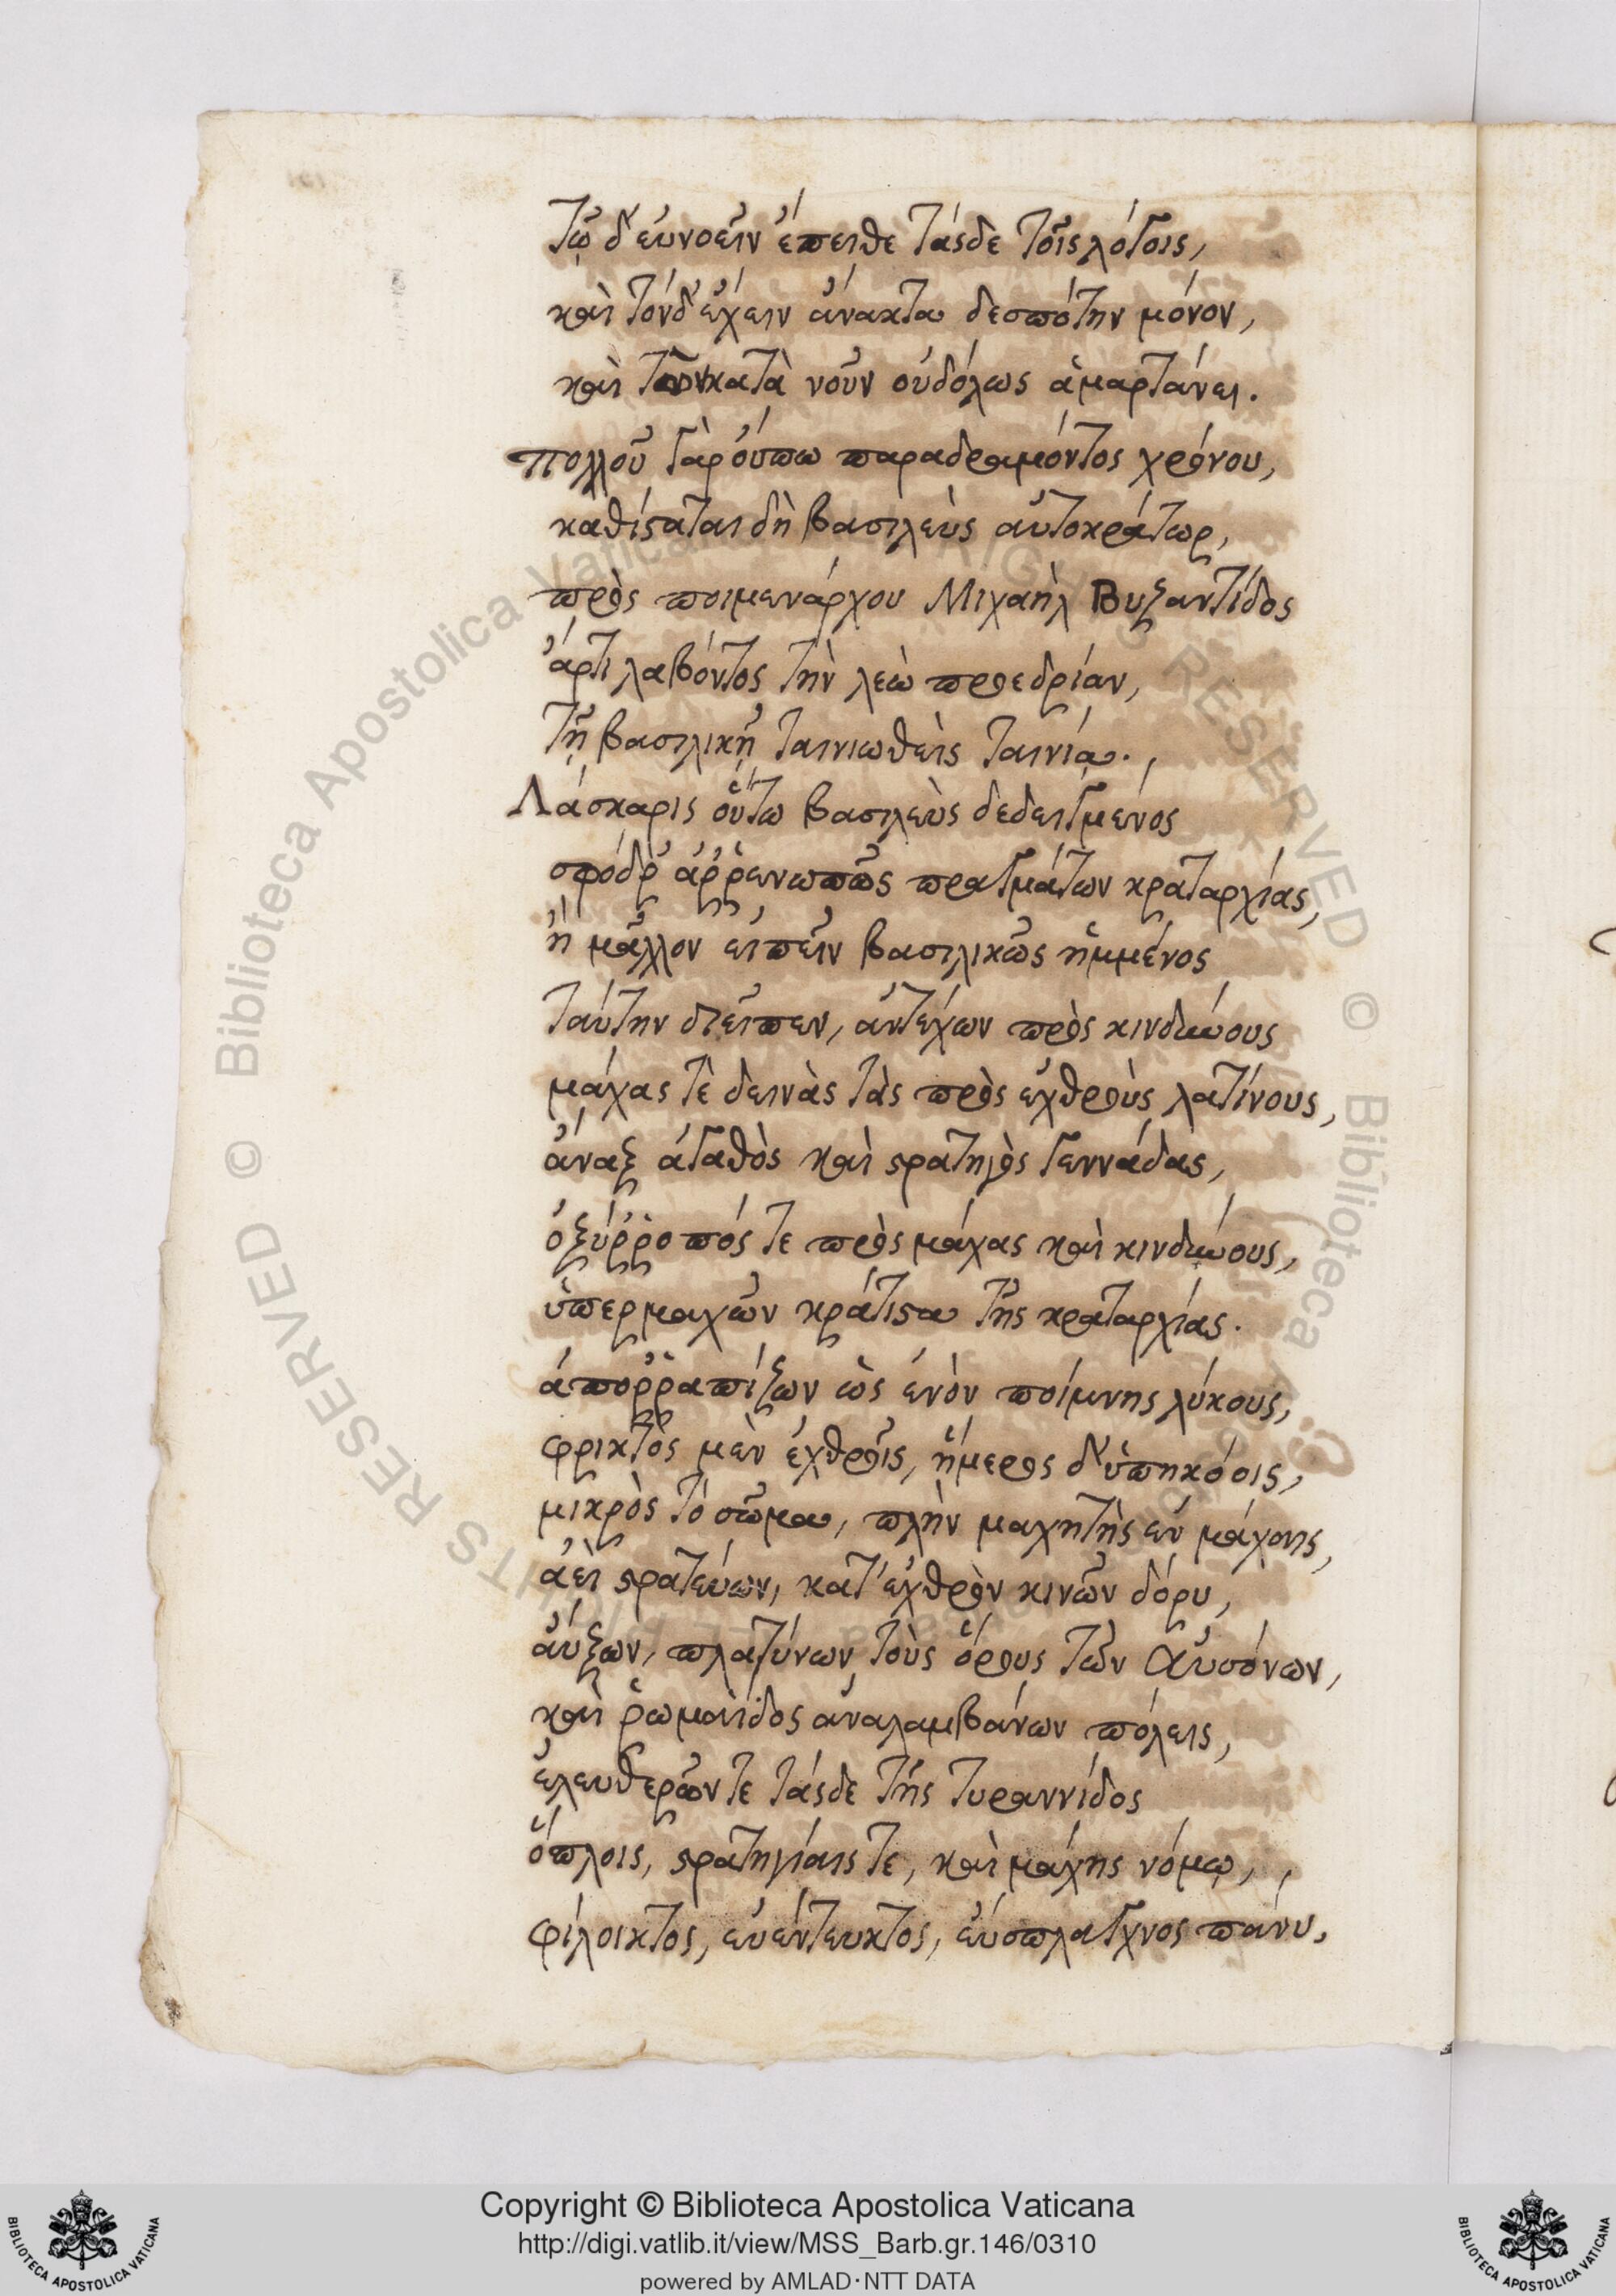 Τῷ δ' εὐνοεῖν ἔπειθε τάσδε τοῖς λόγοις,
καὶ τόνδ' ἔχειν ἄνακτα δεσπότην μόνον,
καὶ κατὰ νοῦν οὐδόλως ἁμαρτάνει.
πολλοῦ γὰρ οὔπω παραδραμόντος χρόνου,
καθίσταται δὴ βασιλεὺς αὐτοκράτωρ,
πρὸς ποιμενάρχου Μιχαὴλ Βυζαντίδος
ἄρτι λαβόντος τὴν λεὼ προεδρίαν,
τῇ βασιλικῇ ταινιωθεὶς ταινίᾳ.,
Λάσκαρις οὕτω βασιλεὺς δεδειγμένος
σφόδρ' ἀῤῥενωπῶς πραγμάτων κραταρχίας,
ἢ μᾶλλον εἰπεῖν βασιλικῶς ἡμμένος
ταύτην διεῖπεν, ἀντέχων πρὸς κινδύνους
μάχας τὲ δεινὰς τὰς πρὸς ἐχθροὺς λατίνους,
ἄναξ ἀγαθὸς καὶ στρατηγὸς γεννάδας,
ὀξύῤῥοπός τε πρὸς μάχας καὶ κινδύνους,
ὑπερμαχῶν κράτιστα τῆς κραταρχίας.
ἀποῤῥαπίζων ὡς ἐνὸν ποίμνης λύκους,
φρικτὸς μὲν ἐχθροῖς, ἥμερος δ' ὑπηκόοις,
μικρὸς τὸ σῶμα, πλὴν μαχητὴς ἐν μάχαις,
ἀεὶ στρατεύων, κατ' ἐχθρὸν κινῶν δόρυ,
αὔξων, πλατύνων τοὺς ὅρους τῶν Αὐσόνων,
καὶ ῥωμαΐδος ἀναλαμβάνων πόλεις,
ἐλευθερῶν τε τάσδε τῆς τυραννίδος
ὅπλοις, στρατηγίαις τε, καὶ μάχης νόμῳ,,
φίλοικτος, εὐέντευκτος, εὔσπλαγχνος πάνυ,
Copyright © Biblioteca Apostolica Vaticana
http://digi.vatlib.it/view/MSS_Barb.gr.146/0310
powered by AMLAD·NTT DATA
BIBLIOTECA APOSTOLICA VATICANA
BIBLIOTECA APOSTOLICA VATICANA